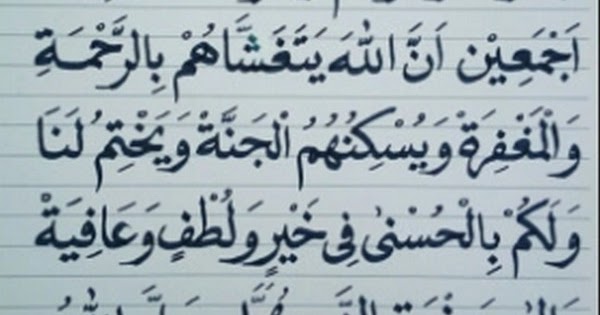 اَجْمَعِيْن اَنَّ اللهَ يَتَغَشَّاهُمْ بِالرَّحْمَةِ
وَالْمَغْفِرَةْ وَيُسْكِنُهُمُ الْجَنَّةْ وَيَخْتِمُ لَنَا
وَلَكُمْ بِالْحُسْنىٰ فِى خَيْرٍ وَلُطْفٍ وَعَافِيَةْ